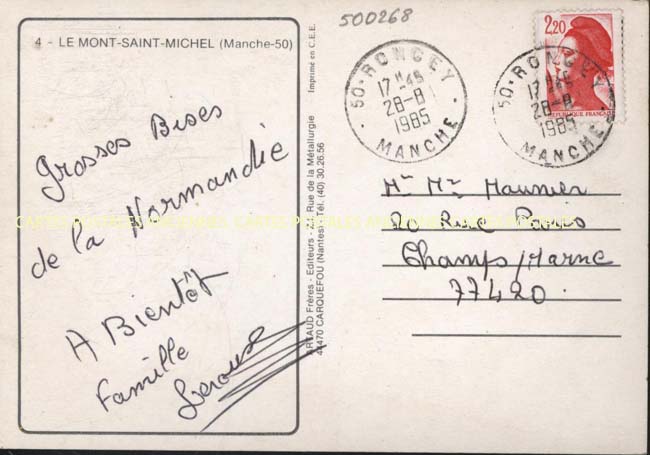 500268
4 - LE MONT-SAINT-MICHEL (Manche-50)
Grosses Bises
de la Normandie
A Bientôt
Famille
Imprimé en C.E.E.
ARTAUD Frères - Editeurs - Rue de la Métallurgie
44470 CARQUEFOU (Nantes) - Tél. (40) 30.26.56
50 - RONCEY
17 H 45
28-8
1985
MANCHE
50 - RONCEY
17 45
28-8
1985
MANCHE
2,20
REPUBLIQUE FRANÇAISE
Mr Mr Maunier
20 Rue
Champs/Marne
77420
CARTES POSTALES ANCIENNES CARTES POSTALES ANCIENNES CARTES POSTALES